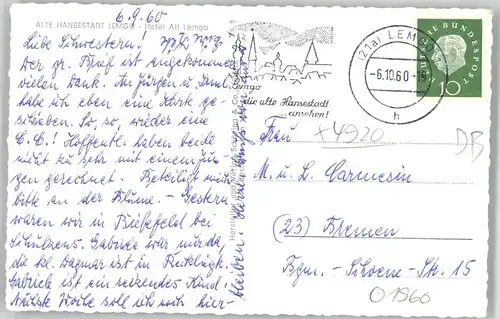 ALTE HANSESTADT LEMGO - Hotel Alt Lemgo
6.9.60
Liebe Schwestern!
Der gr. Brief ist angekommen
vielen Dank. An Jürgen u.
habe ich eben eine Karte ge-
schrieben. So, so, wieder eine
C.C.! Hoffentl. haben beide
nicht zu sehr mit einem Jun-
gen gerechnet. Beteiligt mich
bitte an der Blume. - Gestern
waren wir in Bielefeld bei
Schulzens. Gabriele war nur da,
die kl. Dagmar ist in
Gabriele ist ein reizendes Kind!
Nächste Woche soll ich noch hier-
bleiben! Herzl.
Lemgo
die alte Hansestadt
ansehen!
(21a) LEMGO
-6.10.60-
h
DEUTSCHE BUNDESPOST
10
+4920
DB
Frau
M. u. L. Carmesin
(23) Bremen
Bgm.-Schoene-Str. 15
O 1960